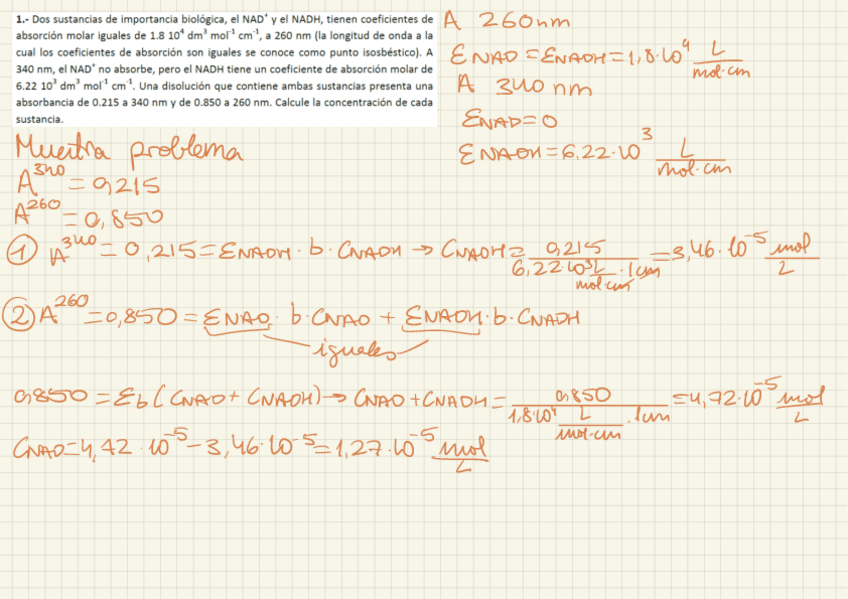 1.- Dos sustancias de importancia biológica, el NAD⁺ y el NADH, tienen coeficientes de
absorción molar iguales de 1.8 10⁴ dm³ mol⁻¹ cm⁻¹, a 260 nm (la longitud de onda a la
cual los coeficientes de absorción son iguales se conoce como punto isosbéstico). A
340 nm, el NAD⁺ no absorbe, pero el NADH tiene un coeficiente de absorción molar de
6.22 10³ dm³ mol⁻¹ cm⁻¹. Una disolución que contiene ambas sustancias presenta una
absorbancia de 0.215 a 340 nm y de 0.850 a 260 nm. Calcule la concentración de cada
sustancia.
A 260nm
εNAD = εNADH = 1,8·10⁴ L/mol·cm
A 340 nm
εNAD = 0
εNADH = 6,22·10³ L/mol·cm
Muestra problema
A³⁴⁰ = 0,215
A²⁶⁰ = 0,850
① A³⁴⁰ = 0,215 = εNADH · b · CNADH → CNADH = 0,215/(6,22·10³ L/mol·cm · 1cm) = 3,46·10⁻⁵ mol/L
② A²⁶⁰ = 0,850 = εNAD · b·CNAD + εNADH·b·CNADH
iguales
0,850 = εb(CNAD + CNADH) → CNAD + CNADH = 0,850/(1,8·10⁴ L/mol·cm · 1cm) = 4,72·10⁻⁵ mol/L
CNAD = 4,72·10⁻⁵ - 3,46·10⁻⁵ = 1,27·10⁻⁵ mol/L